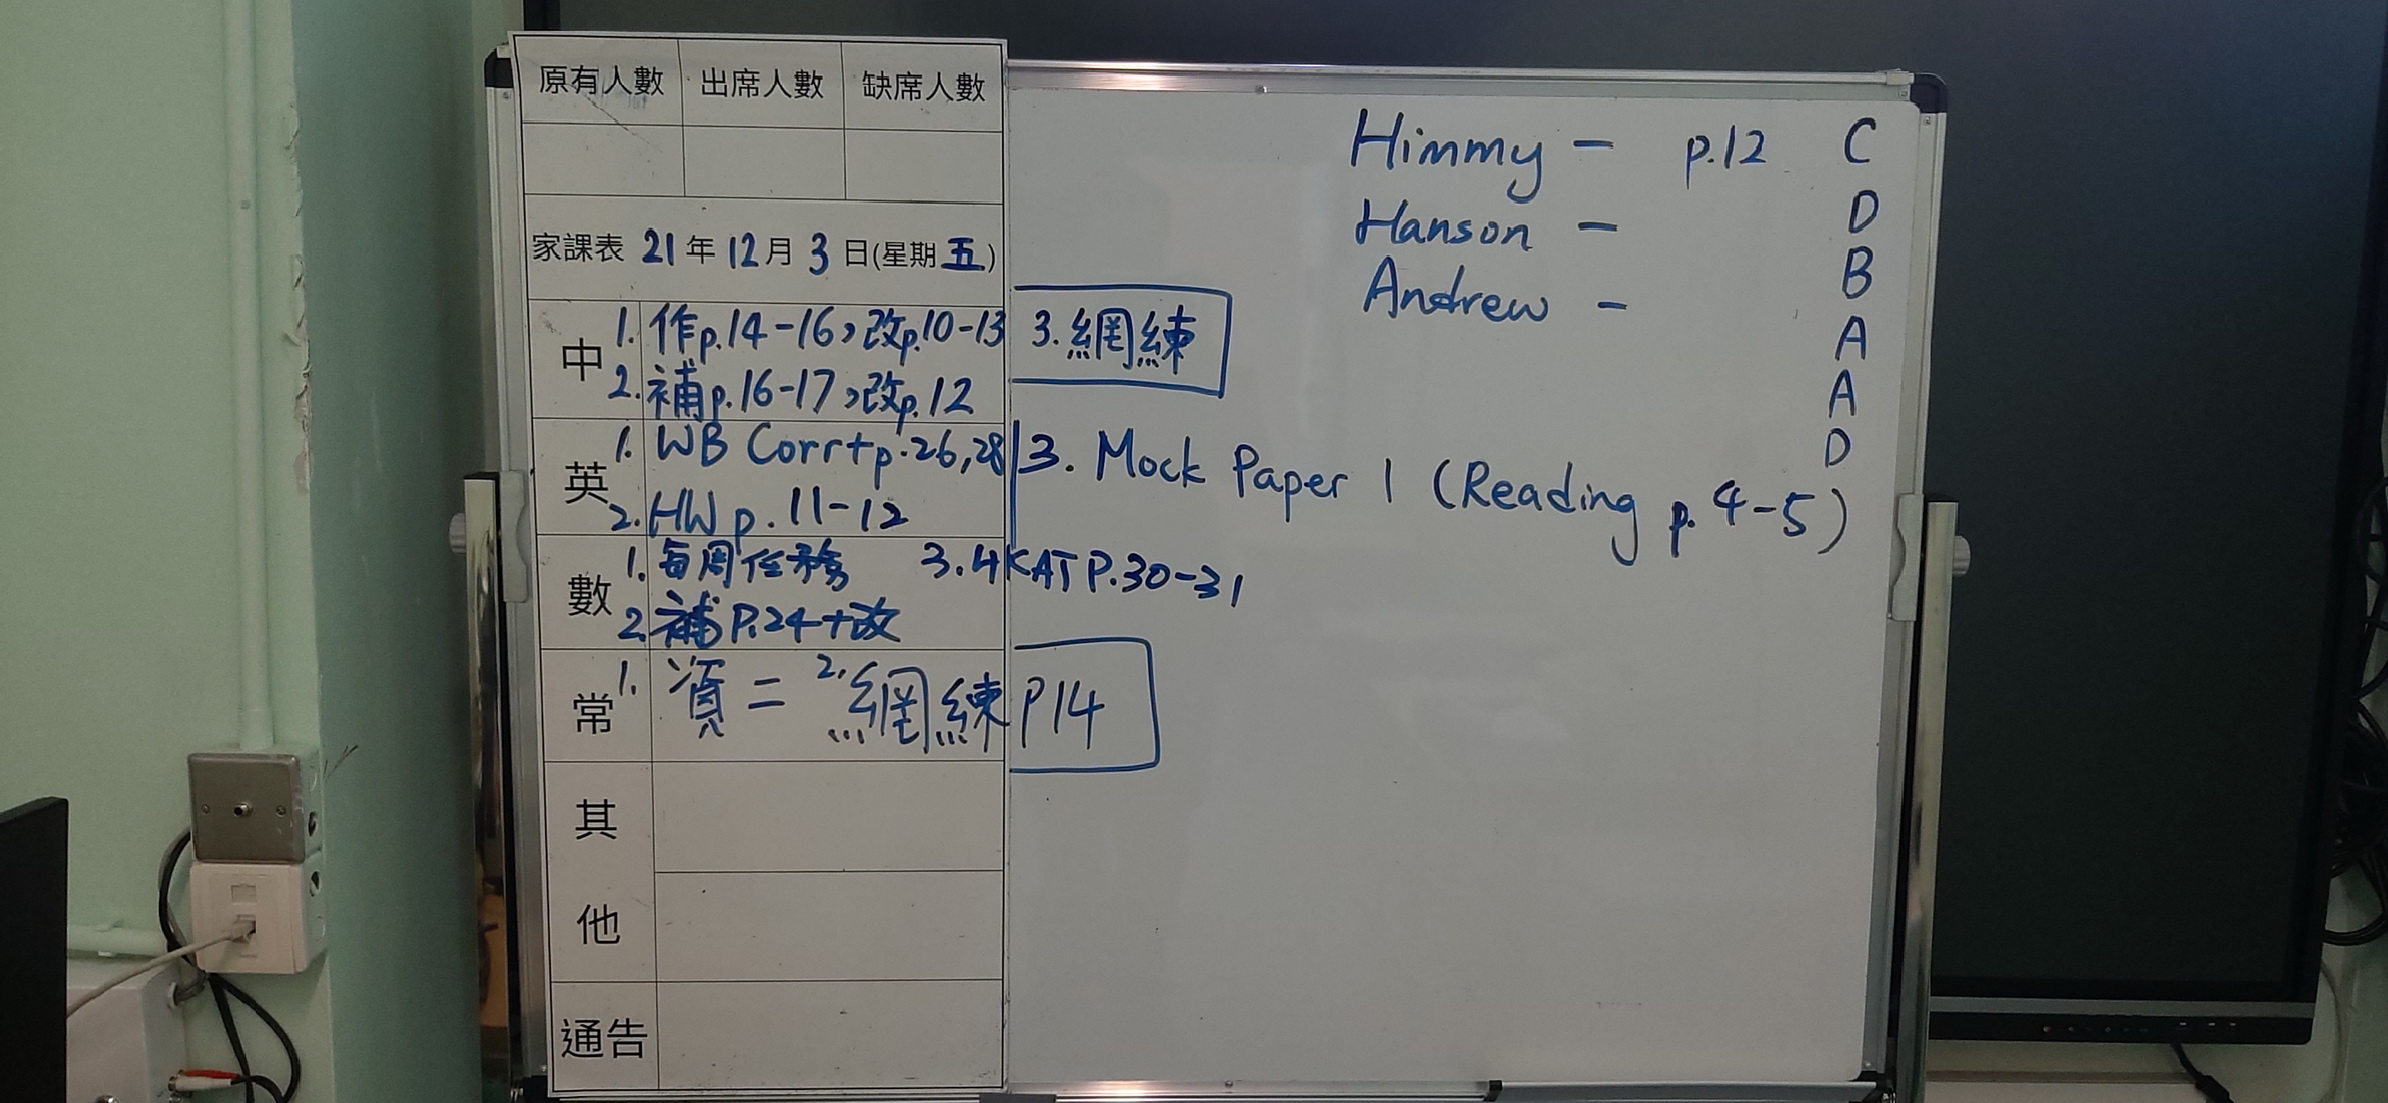 原有人數 出席人數 缺席人數
家課表 21年12月3日(星期五)
中 1. 作p.14-16，改p.10-13 3. 網練
2. 補p.16-17，改p.12
英 1. WB Corr+p.26,28 3. Mock Paper 1 (Reading p.4-5)
2. HW p.11-12
數 1. 每周任務 3. 4KAT P.30-31
2. 補P.24+改
常 1. 2. 網練 P14
其他
通告
Himmy - p.12 C
Hanson - D
Andrew - B
A
A
D